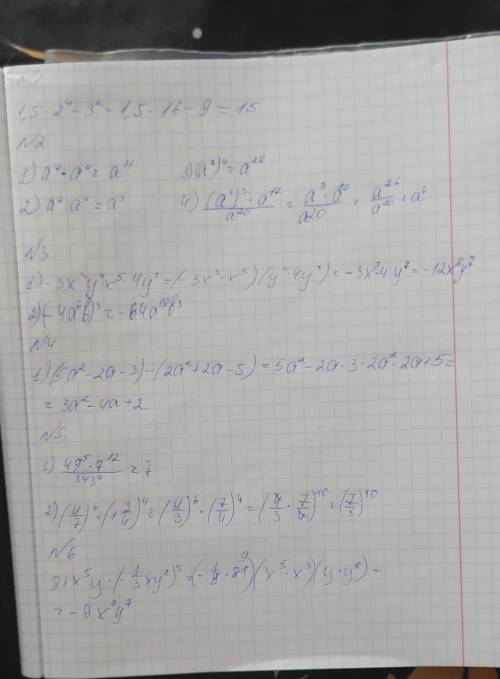 N1
1,5 · 2⁴ - 3² = 1,5 · 16 - 9 = 15
N2
1) a⁷ · a⁴ = a¹¹ 3) (a⁷)⁴ = a²⁸
2) a⁷ : a⁴ = a³ 4) (a²)³ · a¹⁷ / a²⁰ = a⁹ · a¹⁷ / a²⁰ = a²⁶ / a²⁰ = a⁶
N3
1) -3x³y⁴x⁵ · 4y³ = (-3x³ · x⁵) (y⁴ · 4y³) = -3x⁸ · 4y⁷ = -12x⁸y⁷
2) (-4a⁶b)³ = -64a¹⁸b³
N4
1) (5a² - 2a - 3) - (2a² + 2a - 5) = 5a² - 2a - 3 - 2a² - 2a + 5 =
= 3a² - 4a + 2
N5.
1) 49⁵ · 7¹² / 343⁷ = 7
2) (4/7)⁶ · (1 3/4)⁴ = (4/3)⁶ · (7/4)⁴ = (4/3 · 7/4)¹⁰ = (7/3)¹⁰
N6
81x⁵y · (-1/3xy²)³ = (-1/9 · 81) (x⁵ · x³) (y · y⁶) =
= -9x⁸y⁷